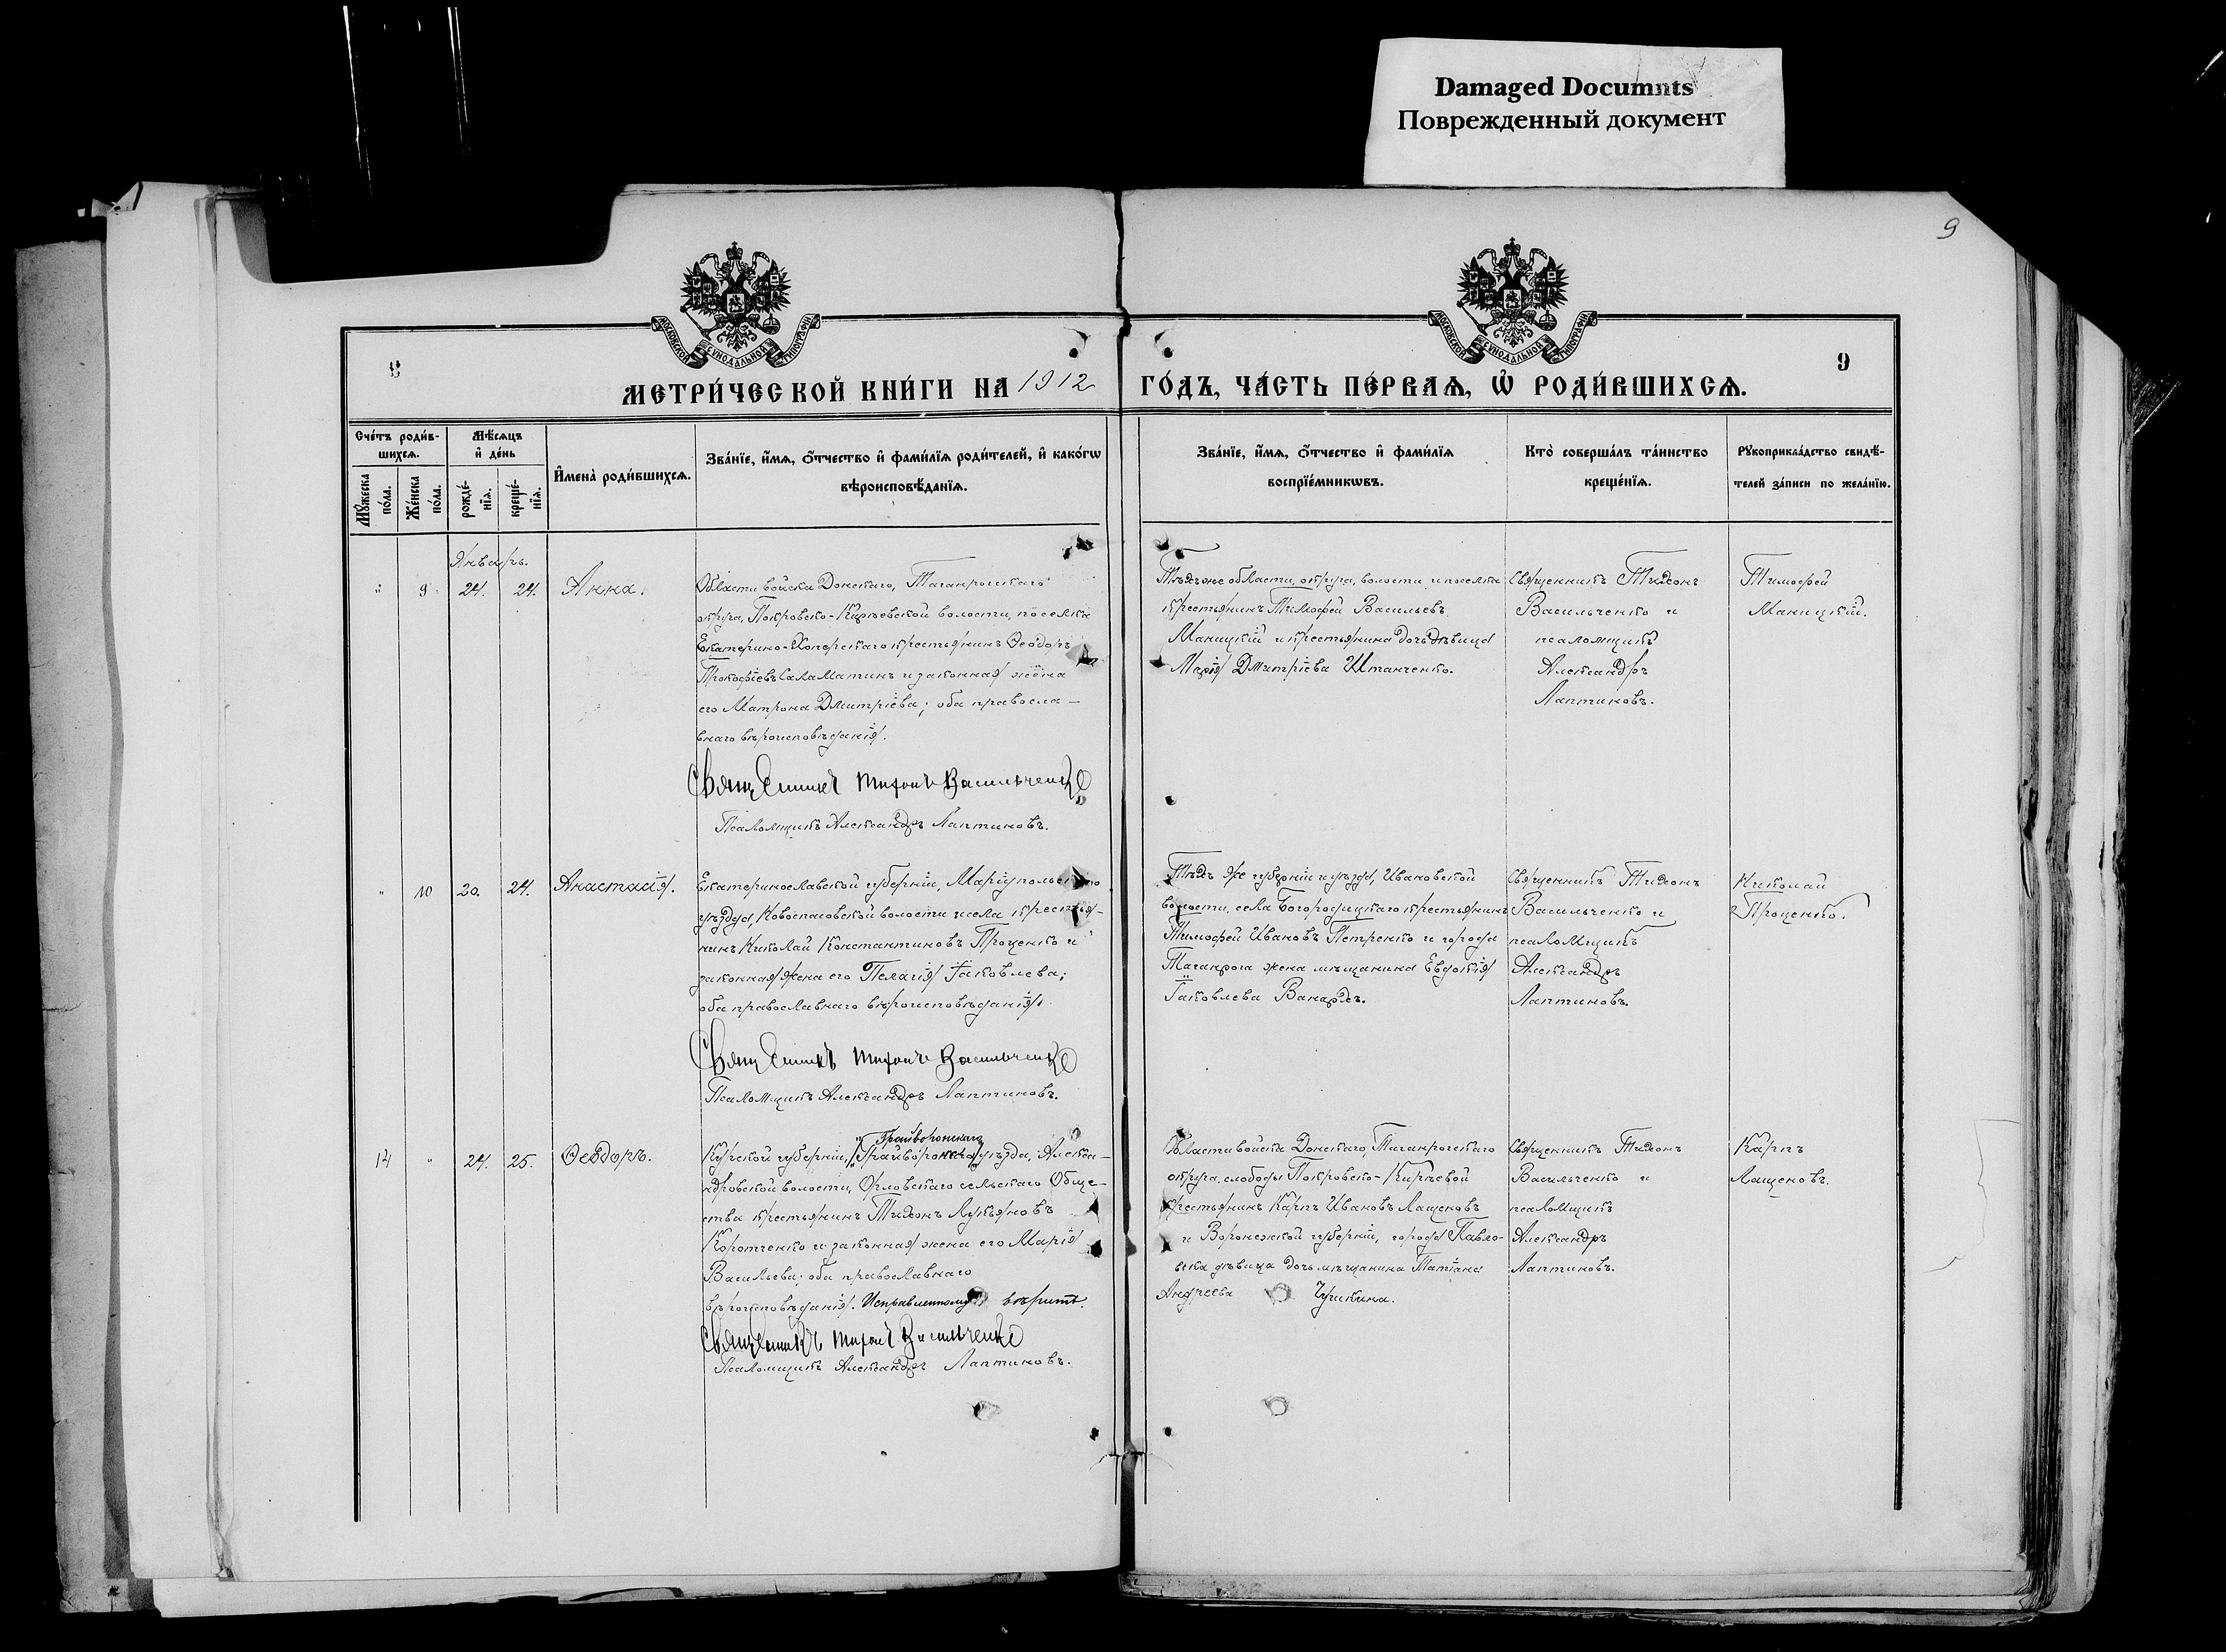 Damaged Documnts
Поврежденный документ
9
МОСКОВСКОЙ СУНОДАЛЬНОЙ ТИПОГРАФІИ
МОСКОВСКОЙ СУНОДАЛЬНОЙ ТИПОГРАФІИ
8
9
МЕТРИ́ЧЕСКОЙ КНИ́ГИ НА 1912
ГО́ДЪ, ЧА́СТЬ ПЕ́РВАѦ, Ѡ҆ РОДИ́ВШИХСѦ.
Сче́тъ роди́в-
шихсѧ.
Мѣ́сѧцъ
и҆ де́нь
Мꙋ́жеска
по́ла.
Же́нска
по́ла.
рожде́-
нїѧ.
креще́-
нїѧ.
И҆мена̀ роди́вшихсѧ.
Зва́нїе, и҆́мѧ, ѻ҆́тчество и҆ фами́лїѧ роди́телей, и҆ како́гѡ
вѣроисповѣ́данїѧ.
Зва́нїе, и҆́мѧ, ѻ҆́тчество и҆ фами́лїѧ
воспрїе́мникѡвъ.
Кто̀ соверша́лъ та́инство
креще́нїѧ.
Рꙋкоприкла́дство свидѣ́-
телей за́писи по жела́нїю.
Январь.
"
9
24.
24.
Анна.
Области войска Донскаго, Таганрогскаго
округа, Покровско-Кирѣевской волости, поселка
Екатерино-Хоперскаго крестьянинъ Ѳеодоръ
Прокофіевъ Саламатинъ и законная жена
его Матрона Дмитріева; оба правосла-
внаго вѣроисповѣданія.
Священникъ Тихонъ Васильченко
Псаломщикъ Александръ Лаптиновъ.
Тѣхъ же области, округа, волости и поселка
крестьянинъ Тимофей Васильевъ
Маницкій и крестьянина дочь дѣвица
Марія Дмитріева Штанченко.
Священникъ Тихонъ
Васильченко и
псаломщикъ
Александръ
Лаптиновъ.
Тимофей
Маницкій.
"
10
20.
24.
Анастасія.
Екатеринославской губерніи, Маріупольскаго
уѣзда, Новоспасовской волости и села крестья-
нинъ Николай Константиновъ Проценко и
законная жена его Пелагія Іаковлева;
оба православнаго вѣроисповѣданія.
Священникъ Тихонъ Васильченко
Псаломщикъ Александръ Лаптиновъ.
Тѣхъ же губерніи и уѣзда, Ивановской
волости, села Богородицкаго крестьянинъ
Тимофей Ивановъ Петренко и города
Таганрога жена мѣщанина Евдокія
Іаковлева
Священникъ Тихонъ
Васильченко и
псаломщикъ
Александръ
Лаптиновъ.
Николай
Проценко.
14
"
24.
25.
Ѳеодоръ.
Грайворонскаго
Курской губерніи, Грайворонска уѣзда, Алекса-
ндровской волости, Орловскаго сельскаго Обще-
ства крестьянинъ Тихонъ Лукьяновъ
Коротченко и законная жена его Марія
Васильева; оба православнаго
вѣроисповѣданія. Исправленному вѣрить.
Священникъ Тихонъ Васильченко
Псаломщикъ Александръ Лаптиновъ.
Области войска Донскаго, Таганрогскаго
округа, слободы Покровско-Кирѣевой
крестьянинъ Карпъ Ивановъ Лащеновъ
и Воронежской губерніи, города Павло-
вска дѣвица дочь мѣщанина Татіана
Андреева Чушкина.
Священникъ Тихонъ
Васильченко и
псаломщикъ
Александръ
Лаптиновъ.
Карпъ
Лащеновъ.